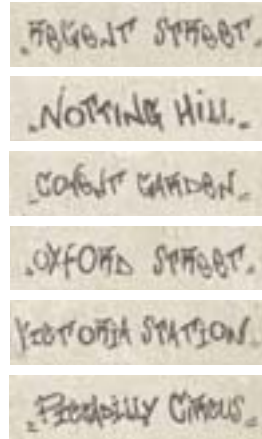 .REGENT STREET.
.NOTTING HILL.
.COVENT GARDEN.
.OXFORD STREET.
VICTORIA STATION.
.PICCADILLY CIRCUS.